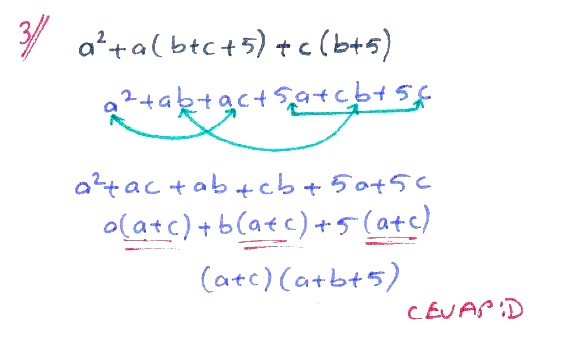 3//
a²+a(b+c+5)+c(b+5)
a²+ab+ac+5a+cb+5c
a²+ac+ab+cb+5a+5c
a(a+c)+b(a+c)+5(a+c)
(a+c)(a+b+5)
CEVAP:D